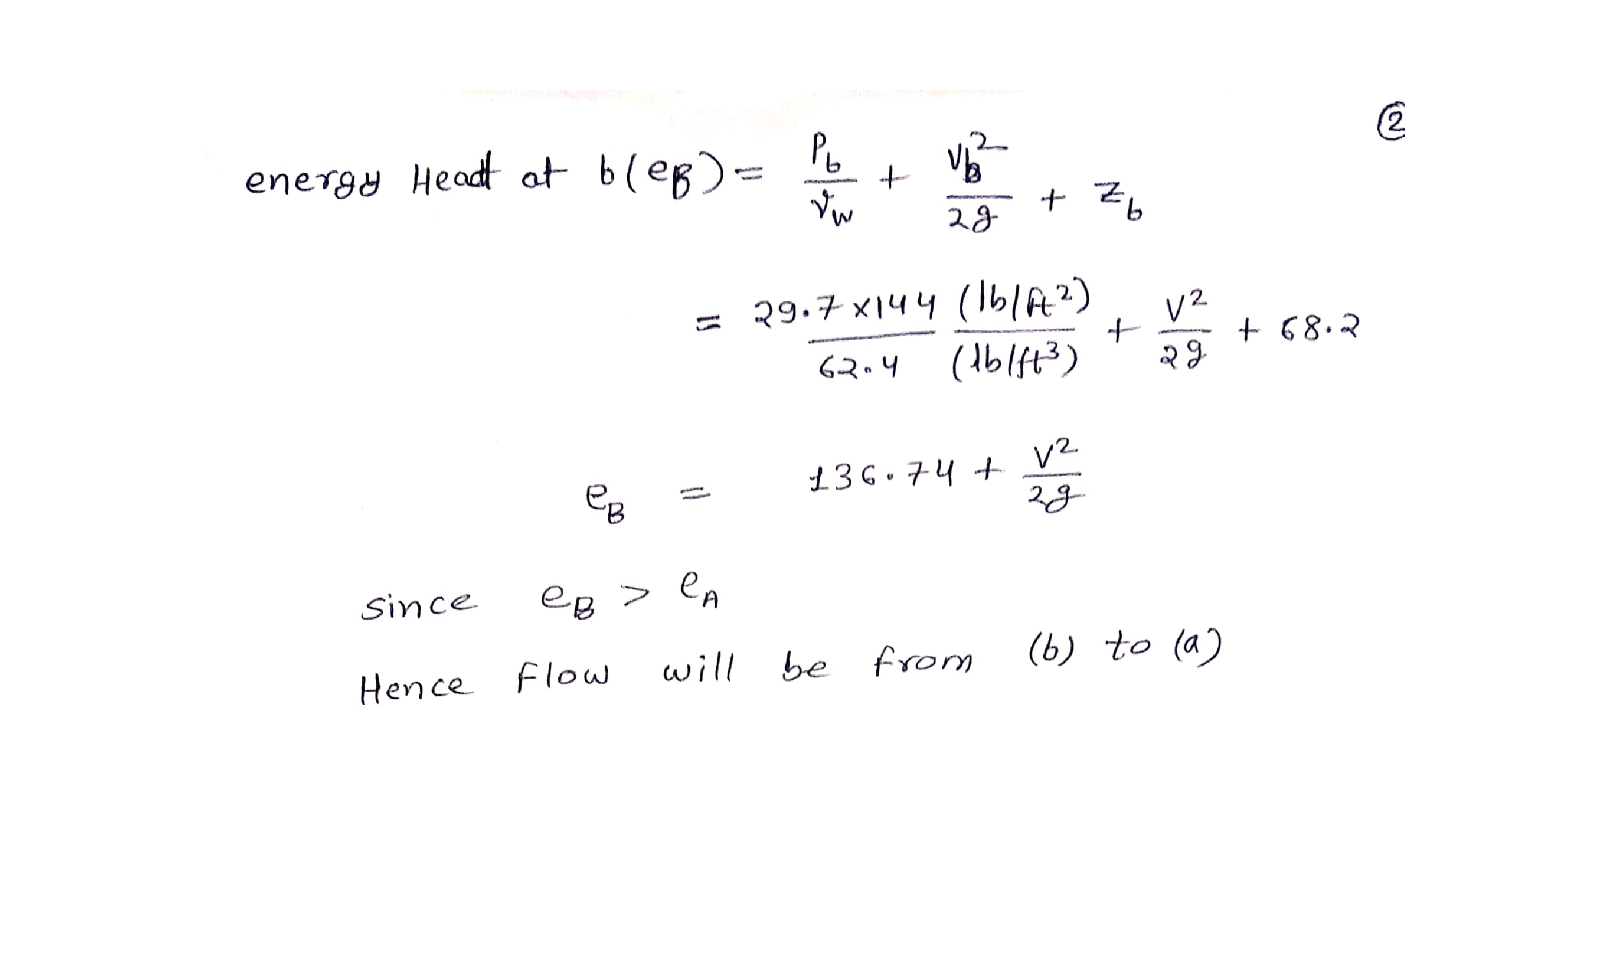 ②
energy Head at b(eB) = Pb/γw + Vb²/2g + Zb
= 29.7 x144/62.4 (lb/ft2)/(lb/ft3) + V²/2g + 68.2
eB = 136.74 + V²/2g
since eB > eA
Hence Flow will be from (b) to (a)